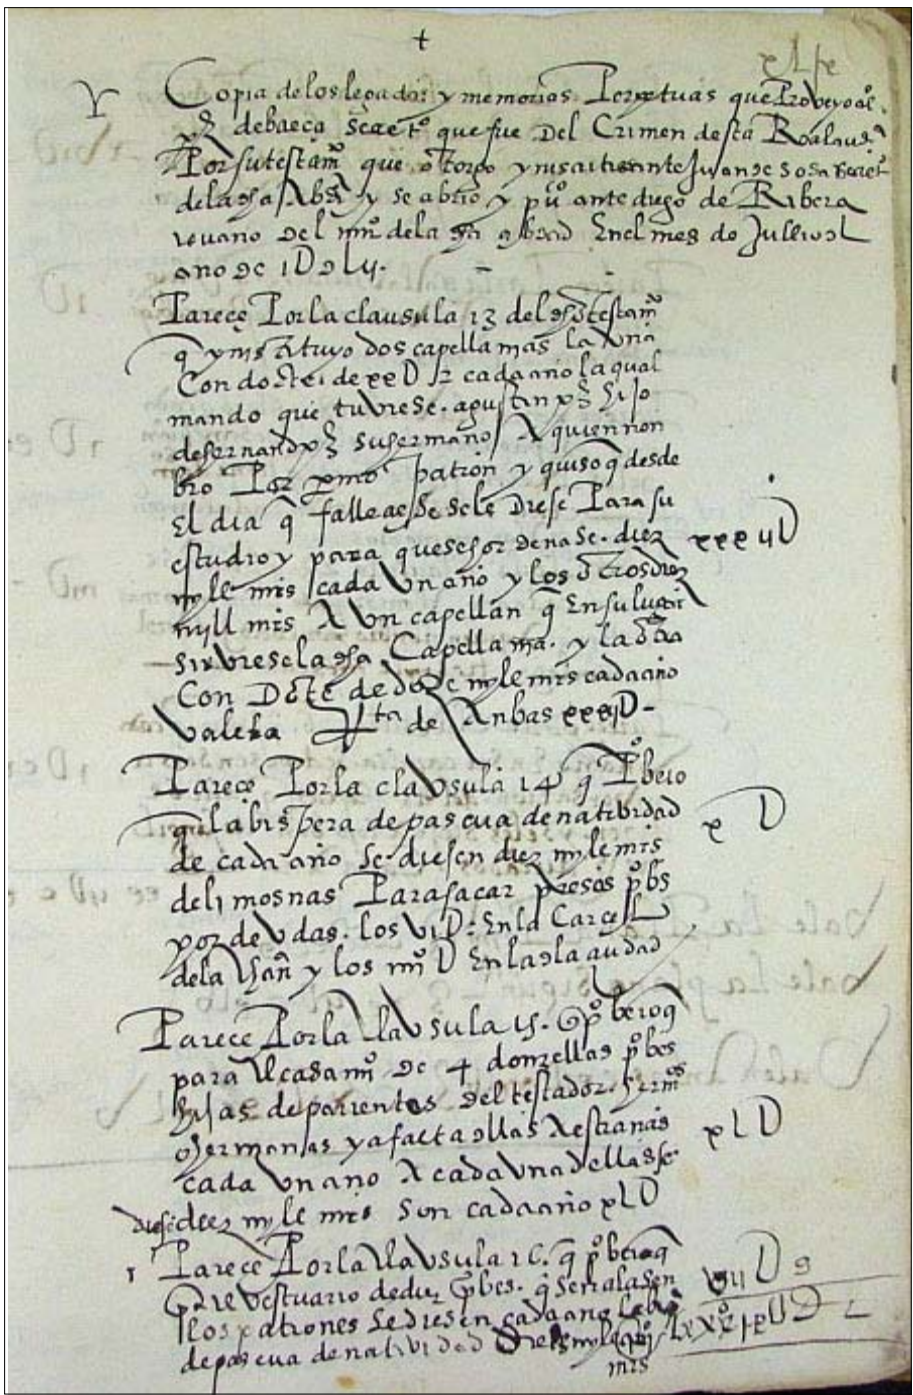 Copia de los legados y memorias Perpetuas que Proveyo
de baeça Secreto que fue Del Crimen desta Real aud
Por su testamo que otorgo ante Juan de sosa secret
dela dha Abdia y se abrio y pu ante diego de Ribera
del nuo dela dha çibdad En el mes de Jullio del
año de 1Dlij.
Pareçe Por la clausula 13 del dho testamo
q ynstituyo dos capellanias la una
Con dote de xxD cada año la qual
mando que tuviese. agustin pz hijo
de hernand pz su hermano A quien non
bro Por patron y quiso q desde
El dia q falleçiese se le Diese Para su
estudio y para que se hordenase. diez
xxxijD
mylle mrs cada Un año y los otros diez
mill mrs A Un capellan q En su lugar
sirviese la dha Capellania. y la otra
Con Dote de doze mylle mrs cada año
de Anbas xxxijD
Pareçe Por la clausula 14 q Pobeio
q la bispera de pascua de natibidad
xD
de cada año se diesen diez mylle mrs
de limosnas Para sacar presos pobs
por deudas. los vjD En la Carçel
dela chan y los D En la dla çiudad
Pareçe Por la clausula 15. q pobeio q
para casamo de 4 donzellas pobes
hijas de parientes Del testador. hermos
o hermanas y a falta dellas A estrañas
xLD
cada Un año A cada Una dellas se
diese diez mylle mrs son cada año xLD
Pareçe Por la clausula 16. q pobeio q
vestuario de diez pobes. q señalasen
los patrones se diesen cada año
de pascua de natividad
mrs